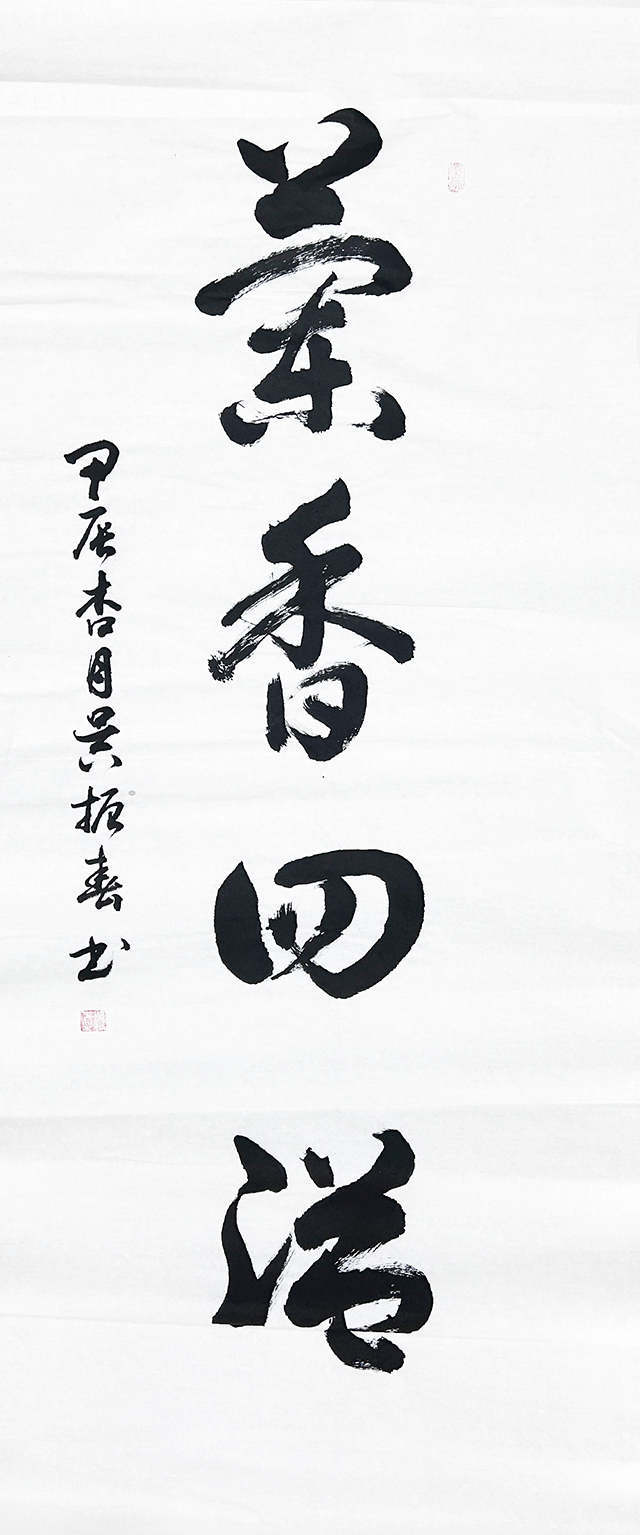 蘭香四溢
甲辰杏月吴振春书